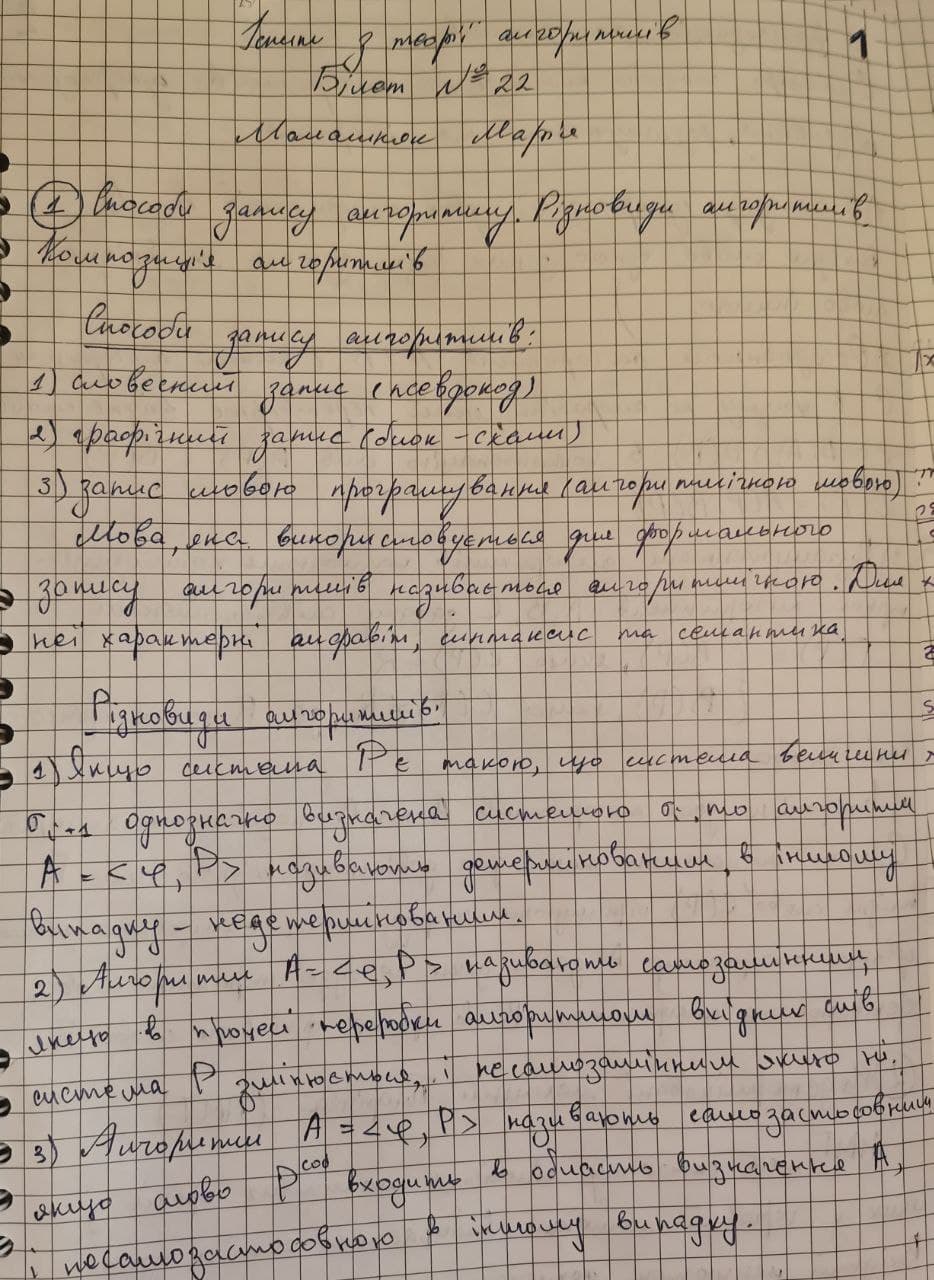 Іспит з теорії алгоритмів
1
Білет № 22
Марія
① Способи запису алгоритму. Різновиди алгоритмів.
Композиція алгоритмів
Способи запису алгоритмів:
1) словесний запис (псевдокод)
2) графічний запис (блок-схеми)
3) запис мовою програмування (алгоритмічною мовою)
Мова, яка використовується для формального
запису алгоритмів називається алгоритмічною. Для
неї характерні алфавіт, синтаксис та семантика.
Різновиди алгоритмів:
1) Якщо система P є такою, що система величини
σi+1 однозначно визначена системою σi, то алгоритм
A = <φ, P> називають детермінованим, в іншому
випадку – недетермінованим.
2) Алгоритм A = <φ, P> називають самозамінним,
якщо в процесі переробки алгоритмом вхідних слів
система P змінюється, і несамозамінним якщо ні.
3) Алгоритм A = <φ, P> називають самозастосовним
якщо слово P^cod входить в область визначення A,
і несамозастосовною в іншому випадку.